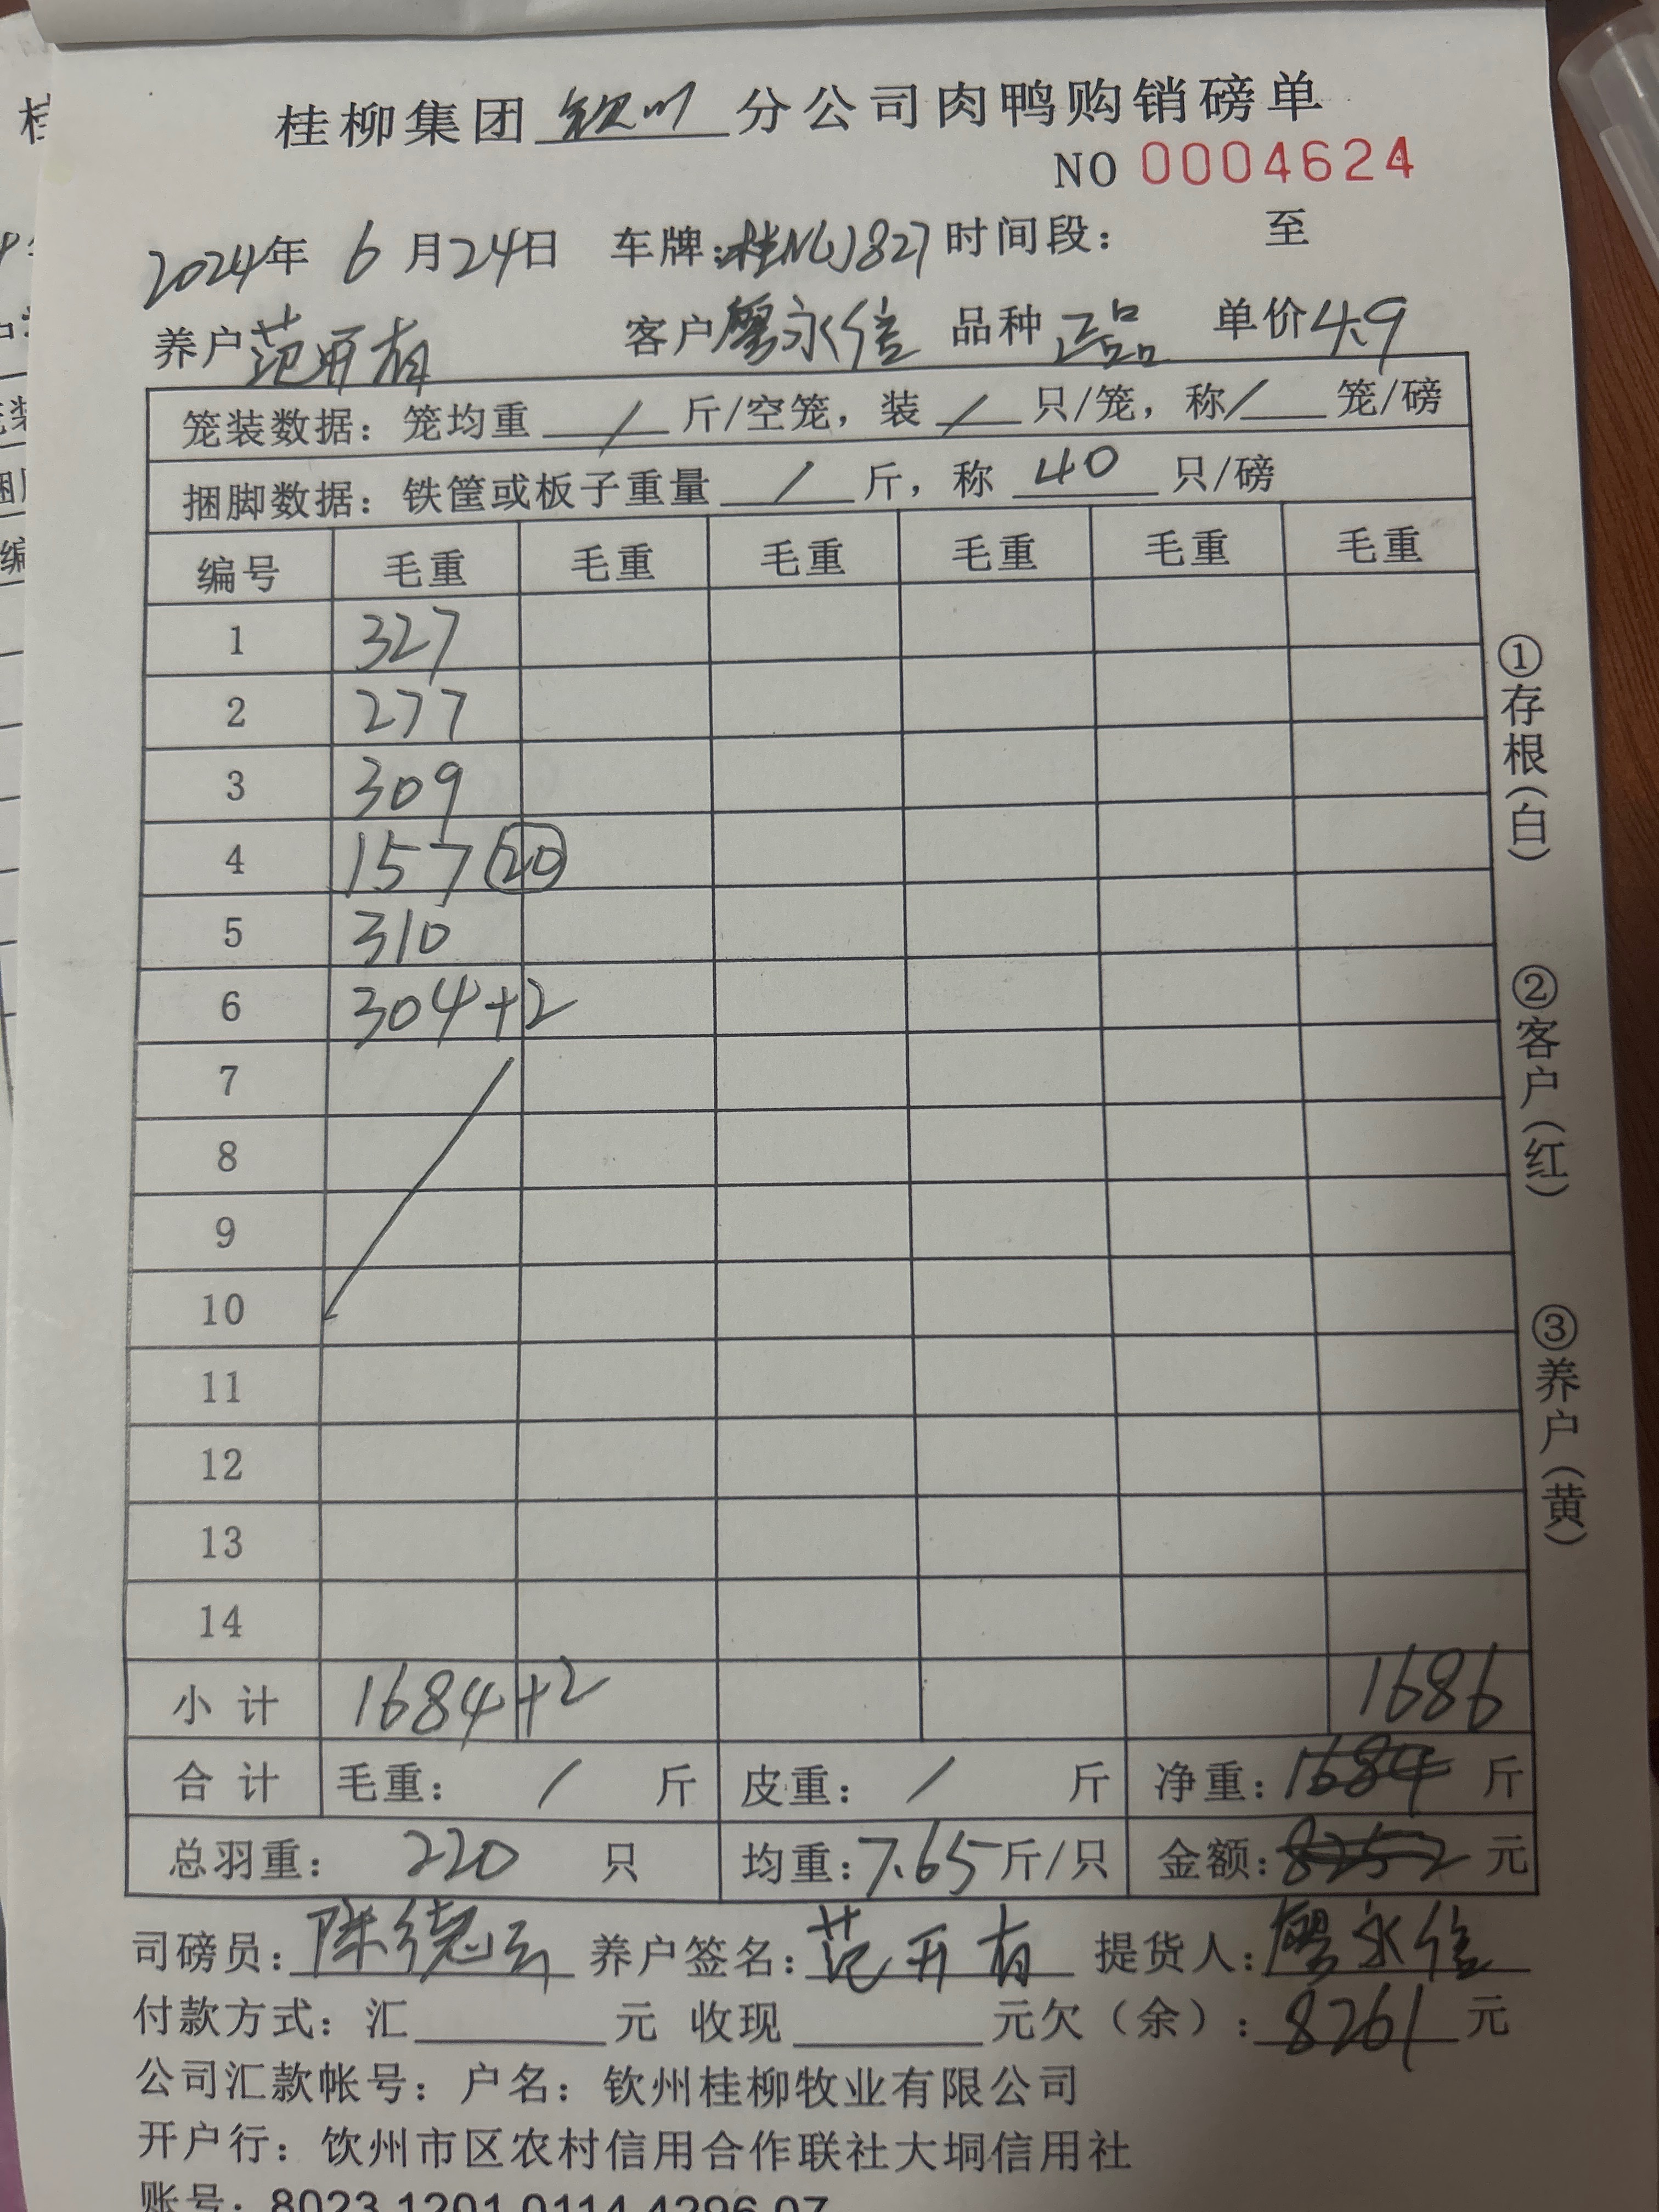 桂柳集团 钦州 分公司肉鸭购销磅单
NO 0004624
2024年 6 月24日 车牌:桂NWJ827 时间段: 至
养户 范开有 客户 廖永信 品种 正品 单价 4.9
笼装数据:笼均重 / 斤/空笼,装 / 只/笼,称 / 笼/磅
捆脚数据:铁筐或板子重量 / 斤,称 40 只/磅
编号 毛重 毛重 毛重 毛重 毛重 毛重
1 327
2 277
3 309
4 157 20
5 310
6 304+2
7
8
9
10
11
12
13
14
小计 1684+2 1686
合计 毛重: / 斤 皮重: / 斤 净重:1684 斤
总羽重: 220 只 均重:7.65斤/只 金额:8252 元
司磅员:陈德云 养户签名:范开有 提货人:廖永信
付款方式:汇 元 收现 元欠(余):8261 元
公司汇款帐号:户名:钦州桂柳牧业有限公司
开户行:钦州市区农村信用合作联社大垌信用社
账号:8023 1201 0114 4296 07
①存根(白)
②客户(红)
③养户(黄)